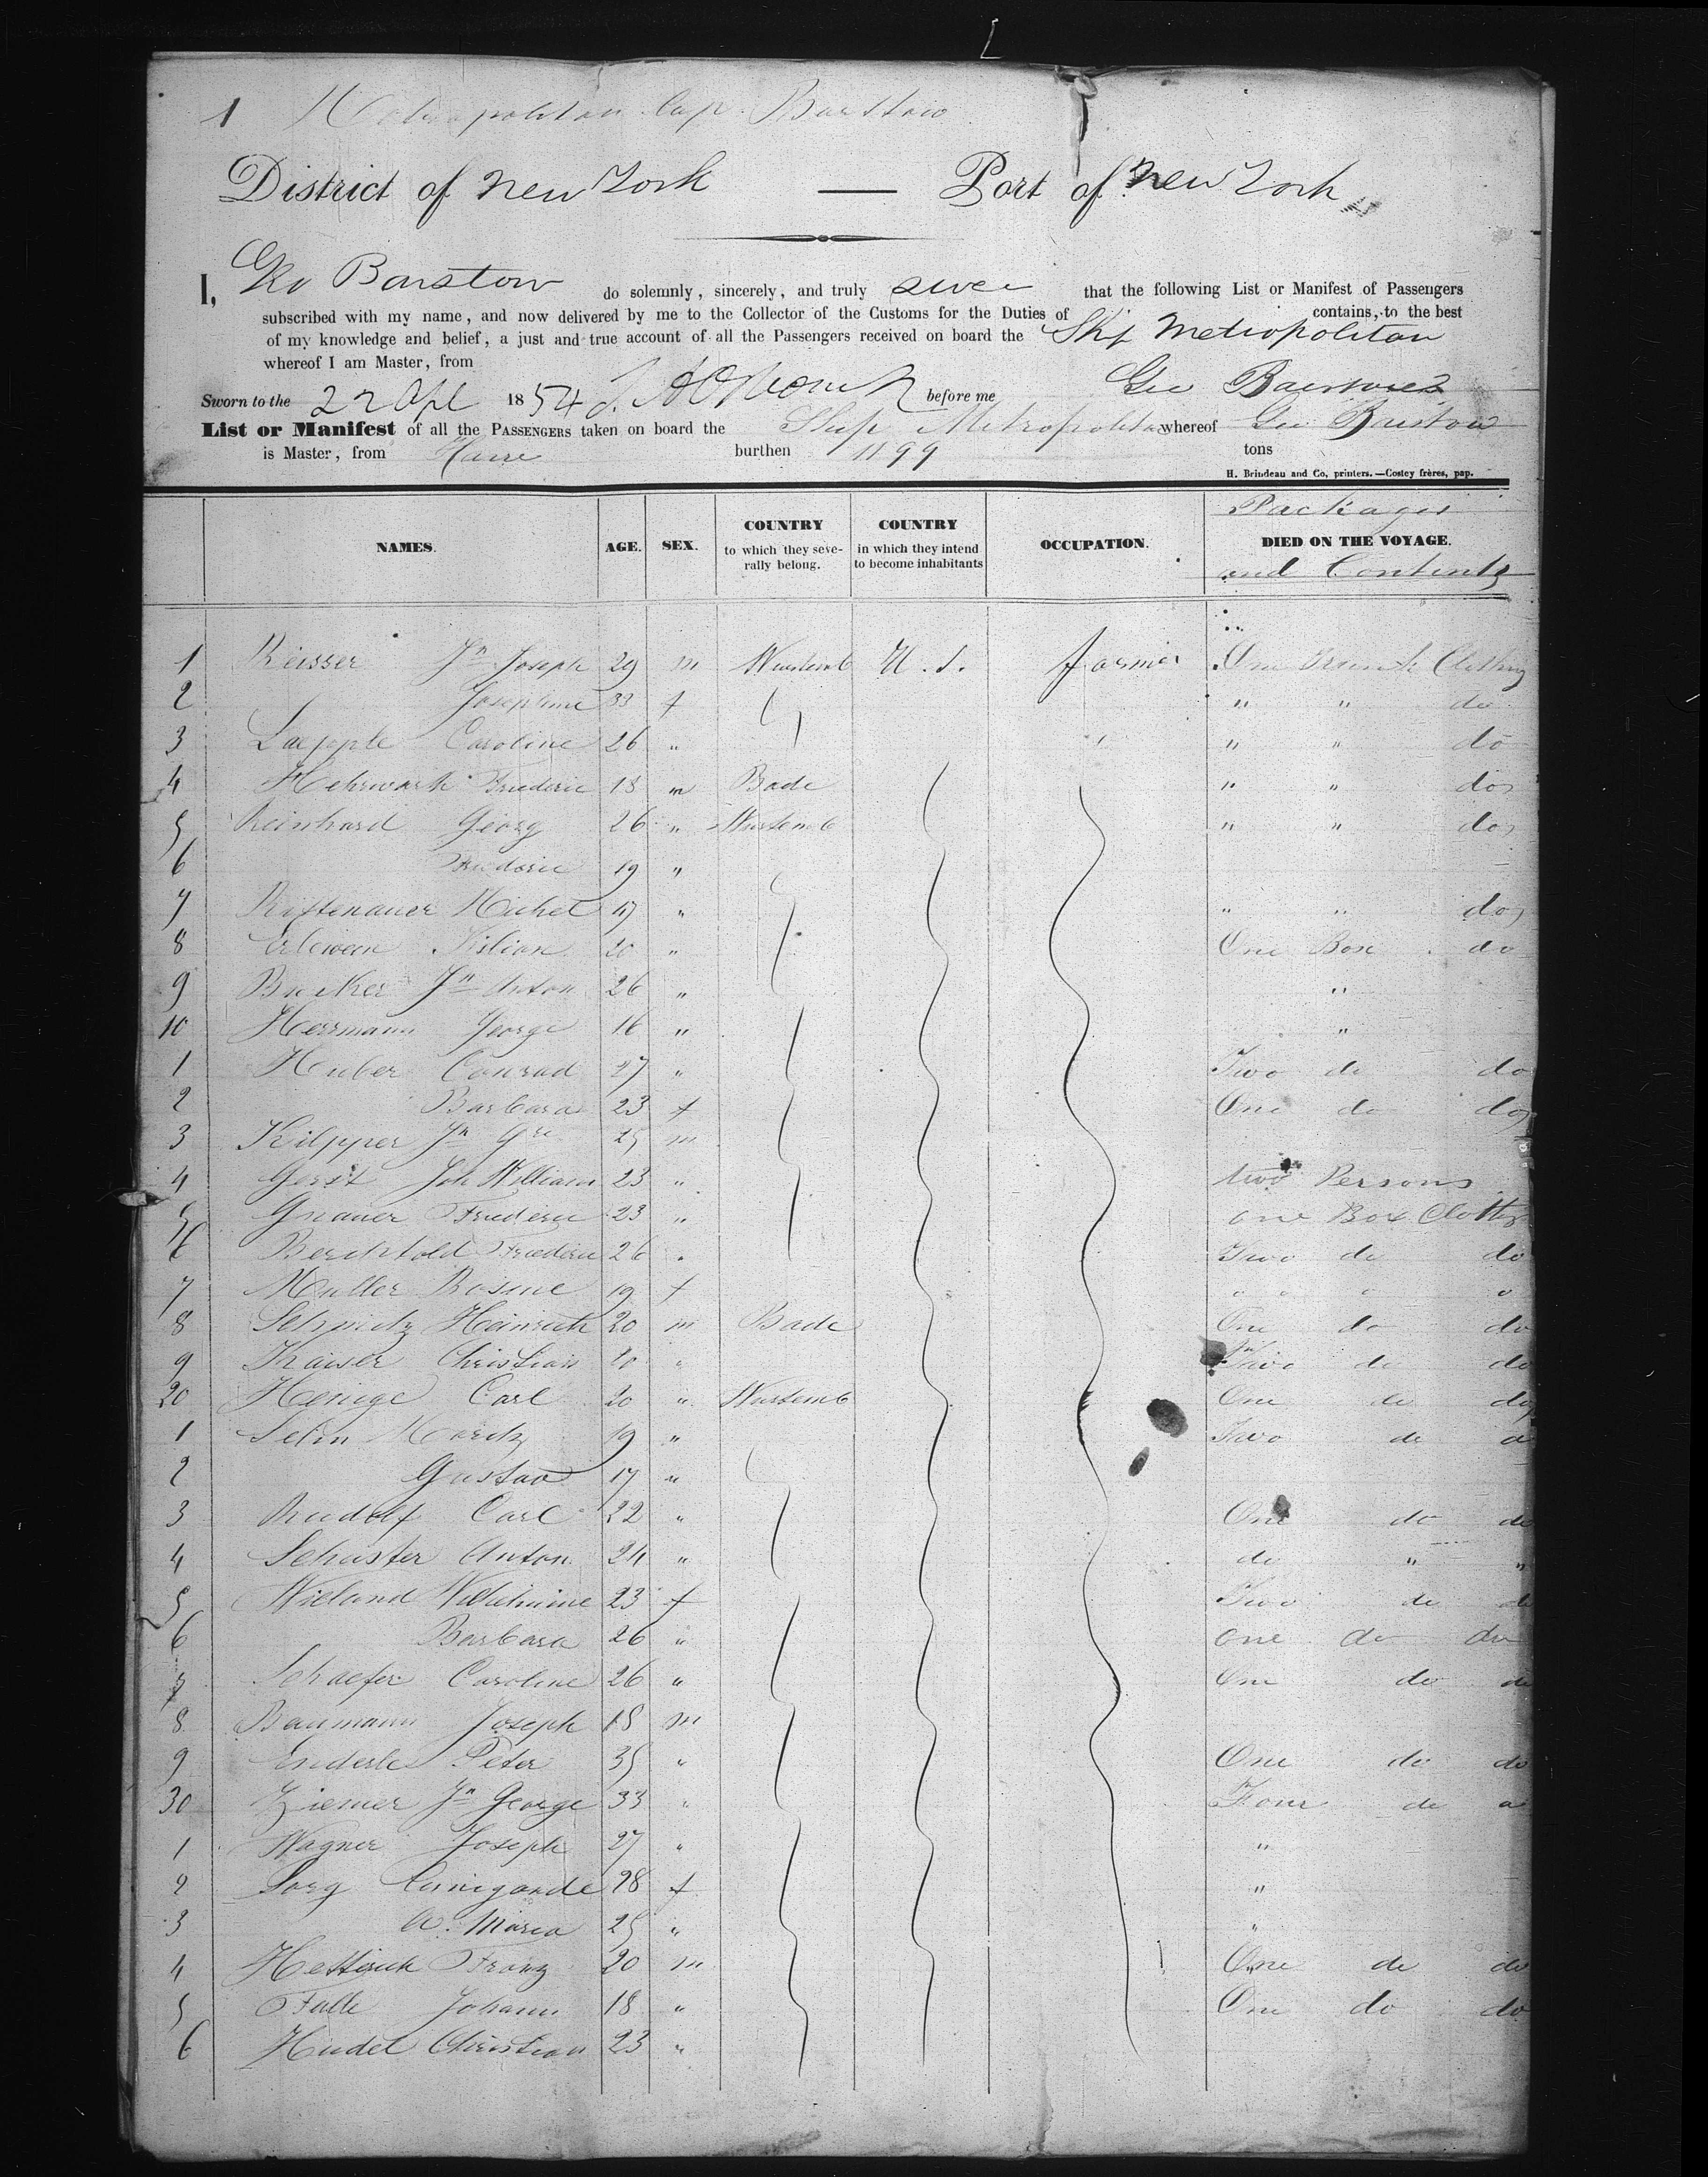 1 Metropolitan Cap. Barstow
District of New York — Port of New York
I, Geo Barstow do solemnly, sincerely, and truly swear that the following List or Manifest of Passengers
subscribed with my name, and now delivered by me to the Collector of the Customs for the Duties of contains, to the best
of my knowledge and belief, a just and true account of all the Passengers received on board the Ship Metropolitan
whereof I am Master, from
Sworn to the 22 Apl 1854 before me Geo Barstow
List or Manifest of all the PASSENGERS taken on board the Ship Metropolitan whereof Geo Barstow
is Master, from Havre burthen 1199 tons
H. Brindeau and Co, printers. — Costey frères, pap.
Packages
NAMES. AGE. SEX. COUNTRY to which they severally belong. COUNTRY in which they intend to become inhabitants OCCUPATION. DIED ON THE VOYAGE.
and Contents
1 Reisser Jn Joseph 29 m Wurtemb U.S. farmer One Trunk Clothing
2 Josephine 33 f " " do
3 Laepple Caroline 26 " " " do
4 Friederic 18 m Bade " " do
5 Reinhard Georg 26 " Wurtemb " " do
6 Friederic 19 "
7 Michel 47 " " " do
8 Kilian 20 " One Box do
9 Bucker Jn Anton 26 " "
10 Herrmann George 16 " "
1 Huber Conrad 27 " Two do do
2 Barbara 23 f One do do
3 Kilpper Jn Gre 25 m
4 Gerst Joh William 23 " two Persons
5 Gnauer Friederic 23 " one Box Clothes
6 Berchtold Friederic 26 " Two do do
7 Muller Rosine 19 f " " " "
8 Heinrich 20 m Bade One do do
9 Kaiser Christian 20 " Two do do
20 Carl 20 " Wurtemb One do do
1 Moritz 19 " Two do do
2 Gustav 17 "
3 Rudolf Carl 22 " One do do
4 Schuster Anton 24 " do " "
5 Wieland Wilhelmine 23 f Two do do
6 Barbara 26 " one do do
7 Schaefer Caroline 26 " One do do
8 Baumann Joseph 18 m
9 Enderle Peter 35 " One do do
30 Ziemer Jn George 33 " Four do do
1 Wagner Joseph 27 " "
2 Sorg Cunigonde 28 f "
3 A. Maria 25 " "
4 Hettirich Franz 20 m One do do
5 Falle Johann 18 " One do do
6 Hudel Christian 23 "